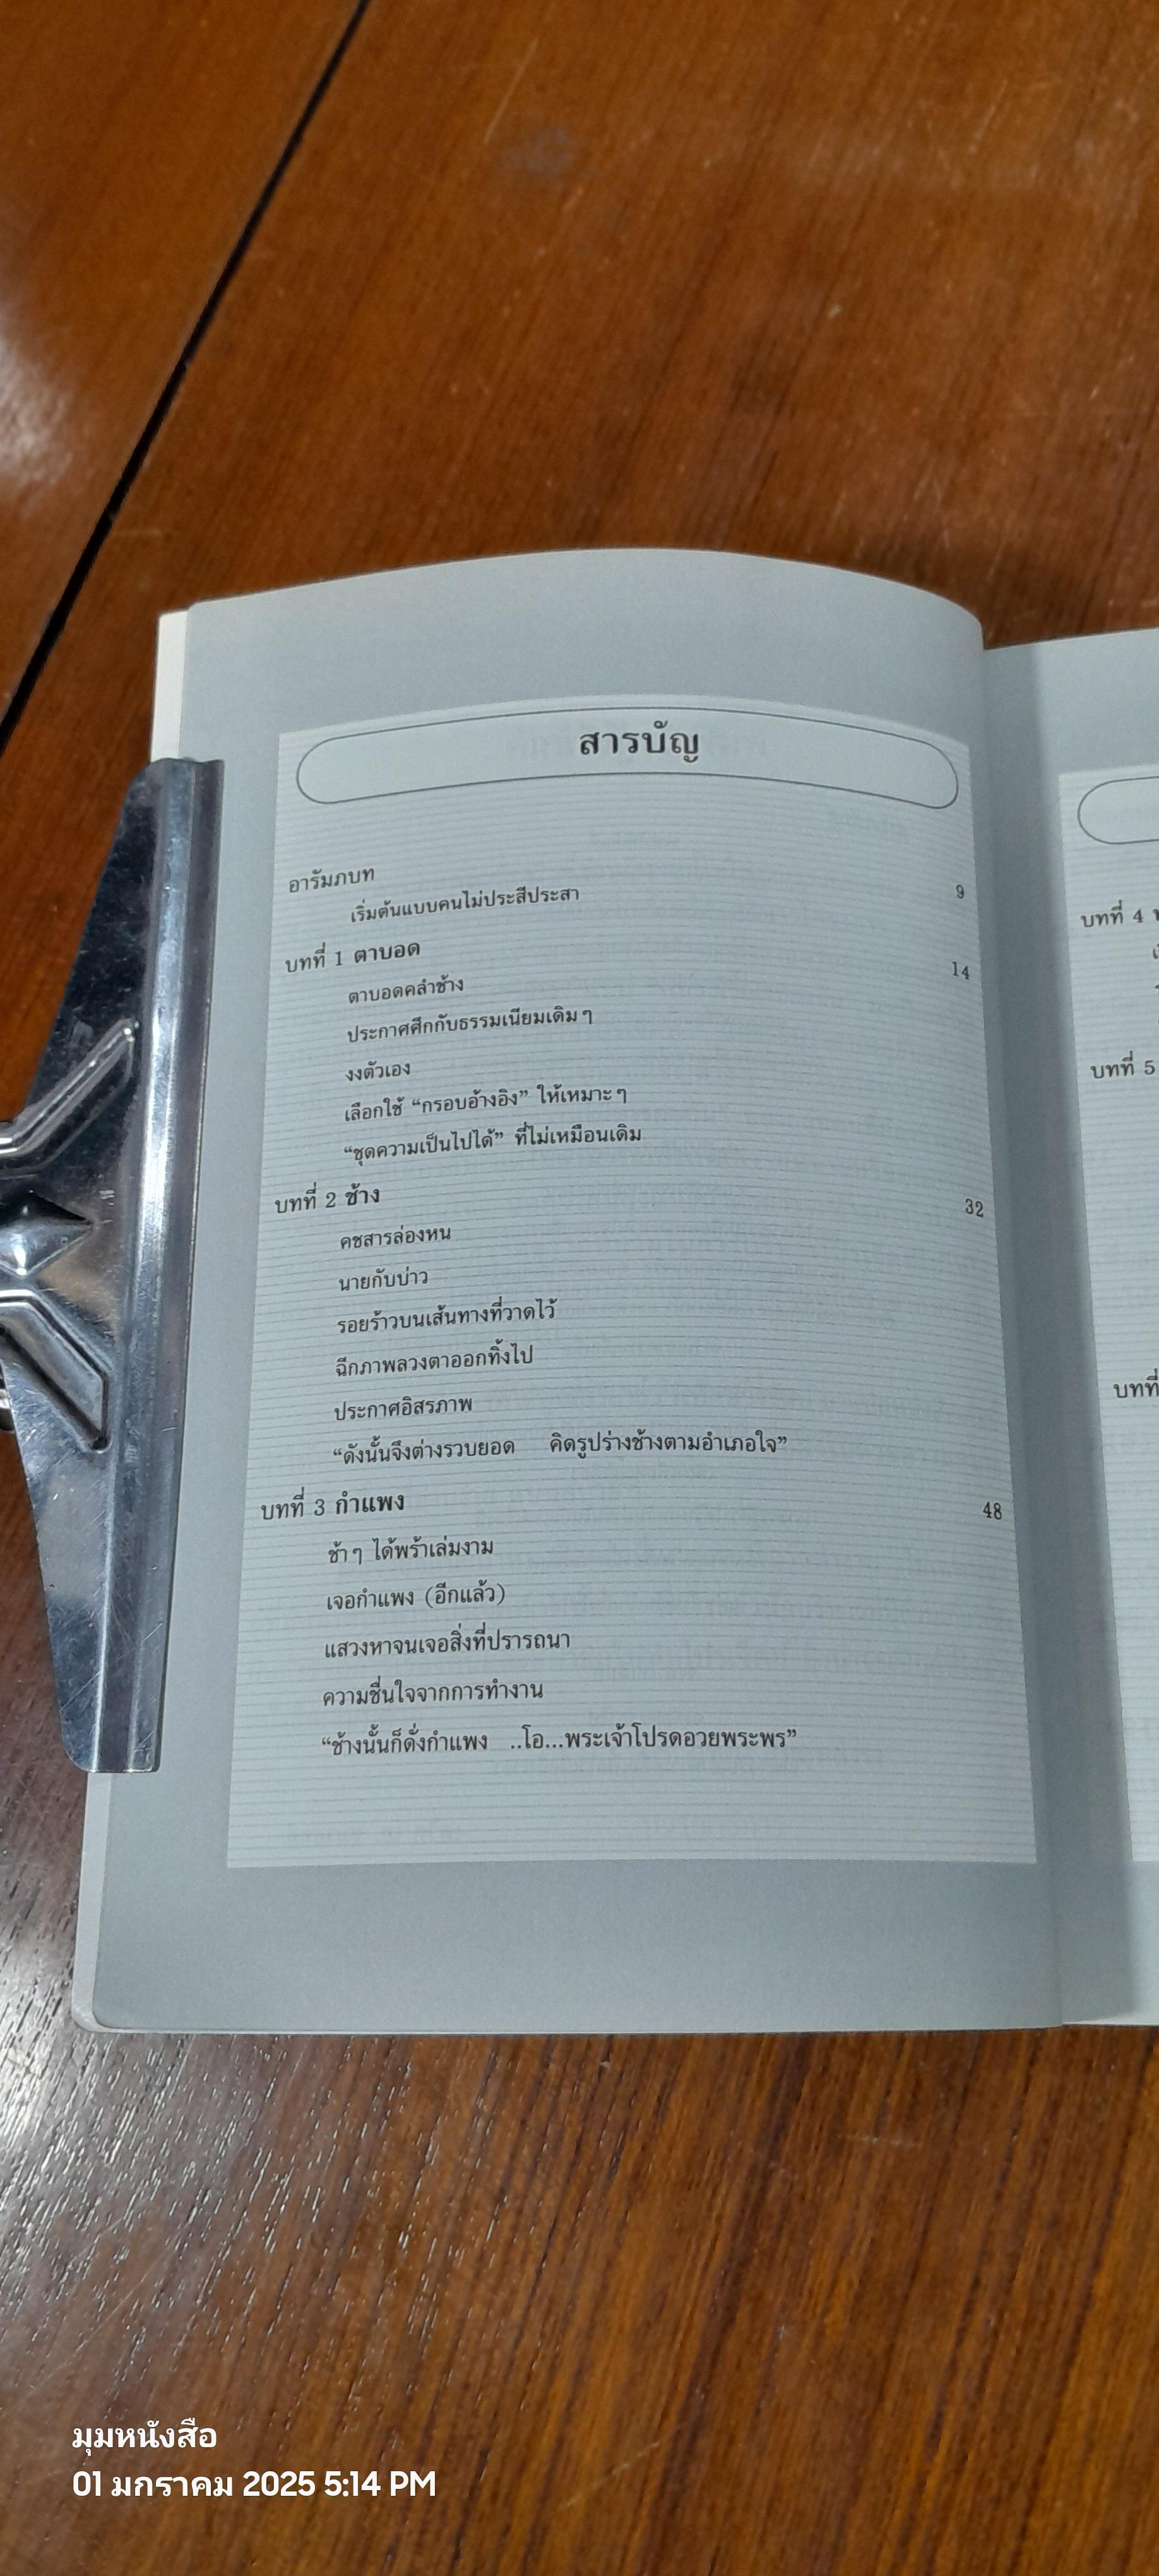 สารบัญ
อารัมภบท
เริ่มต้นแบบคนไม่ประสีประสา 9
บทที่ 1 ตาบอด 14
ตาบอดคลำช้าง
ประกาศศึกกับธรรมเนียมเดิมๆ
งงตัวเอง
เลือกใช้ “กรอบอ้างอิง” ให้เหมาะๆ
“ชุดความเป็นไปได้” ที่ไม่เหมือนเดิม
บทที่ 2 ช้าง 32
คชสารล่องหน
นายกับบ่าว
รอยร้าวบนเส้นทางที่วาดไว้
ฉีกภาพลวงตาออกทิ้งไป
ประกาศอิสรภาพ
“ดังนั้นจึงต่างรวบยอด คิดรูปร่างช้างตามอำเภอใจ”
บทที่ 3 กำแพง 48
ช้าๆ ได้พร้าเล่มงาม
เจอกำแพง (อีกแล้ว)
แสวงหาจนเจอสิ่งที่ปรารถนา
ความชื่นใจจากการทำงาน
“ช้างนั้นก็ดั่งกำแพง ..โอ...พระเจ้าโปรดอวยพระพร”
บทที่ 4
บทที่ 5
บทที่
มุมหนังสือ
01 มกราคม 2025 5:14 PM